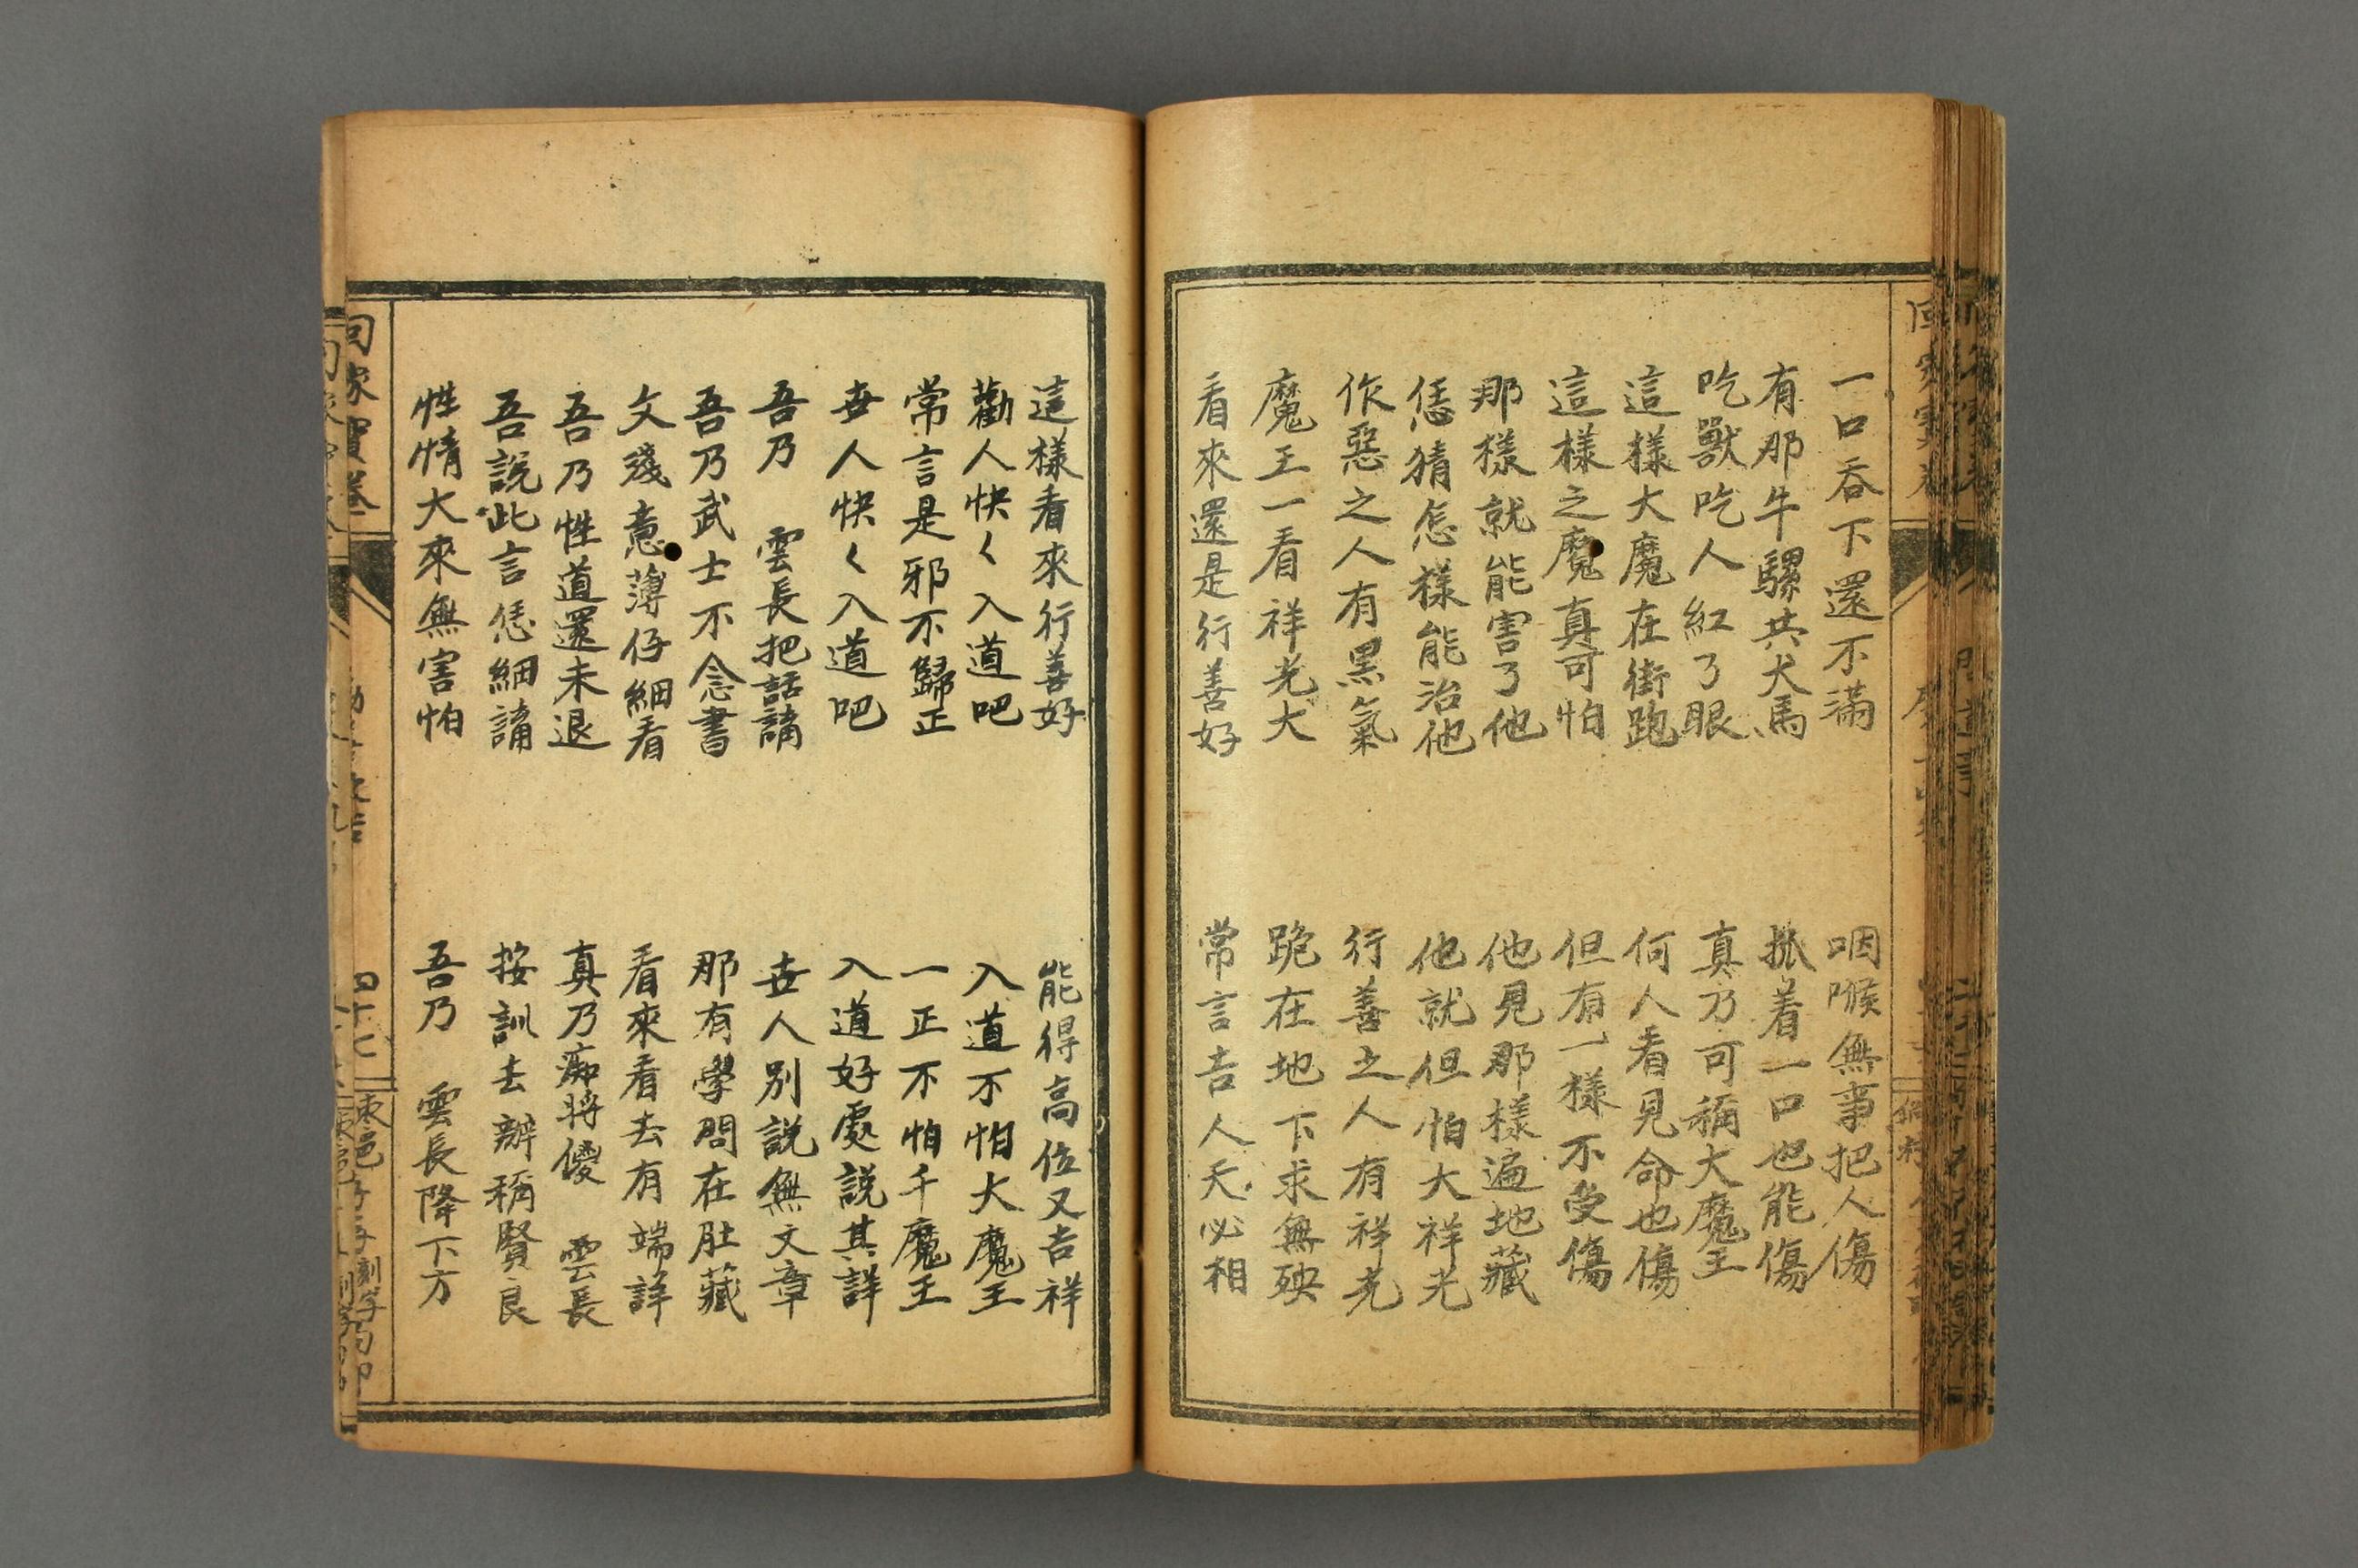 一口吞下還不滿　咽喉無事把人傷
有那牛騾共犬馬　抓着一口也能傷
吃獸吃人紅了眼　真乃可稱大魔王
這樣大魔在街跑　何人看見命也傷
這樣之魔真可怕　但有一樣不受傷
那樣就能害了他　他見那樣遍地藏
恁猜怎樣能治他　他就但怕大祥光
作惡之人有黑氣　行善之人有祥光
魔王一看祥光大　跪在地下求無殃
看來還是行善好　常言吉人天必相
這樣看來行善好　能得高位又吉祥
勸人快〱入道吧　入道不怕大魔王
常言是邪不歸正　一正不怕千魔王
世人快〱入道吧　入道好處說其詳
吾乃　雲長把話講　世人別說無文章
吾乃武士不念書　那有學問在肚藏
文淺意薄仔細看　看來看去有端詳
吾乃性道還未退　真乃痴將傻　雲長
吾說此言恁細講　按訓去辦稱賢良
性情大來無害怕　吾乃　雲長降下方
回家寶卷
四十七